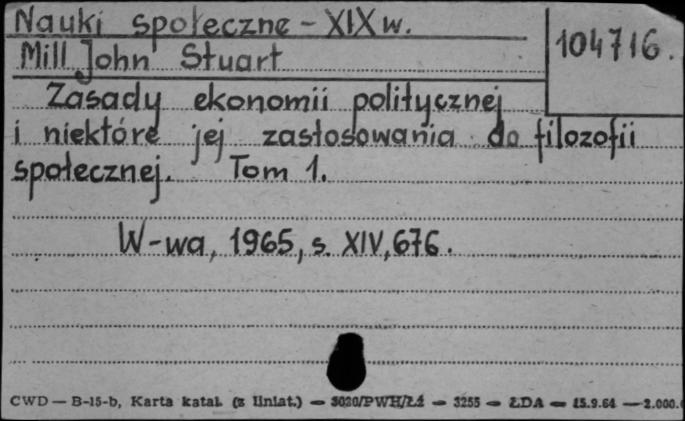 Nauki społeczne - XIX w.
104716.
Mill John Stuart
Zasady ekonomii politycznej
i niektóre jej zastosowania do filozofii
społecznej. Tom 1.
W-wa, 1965, s. XIV, 676.
CWD — B-15-b, Karta katal. (z liniat.) — 3020/PWH/Łź — 3255 — ŁDA — 15.9.64 — 2.000.